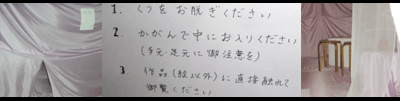 1. くつをお脱ぎください
2. かがんで中にお入りください
(手元・足元に御注意を)
3. 作品(絵以外)に直接触れて
御覧ください